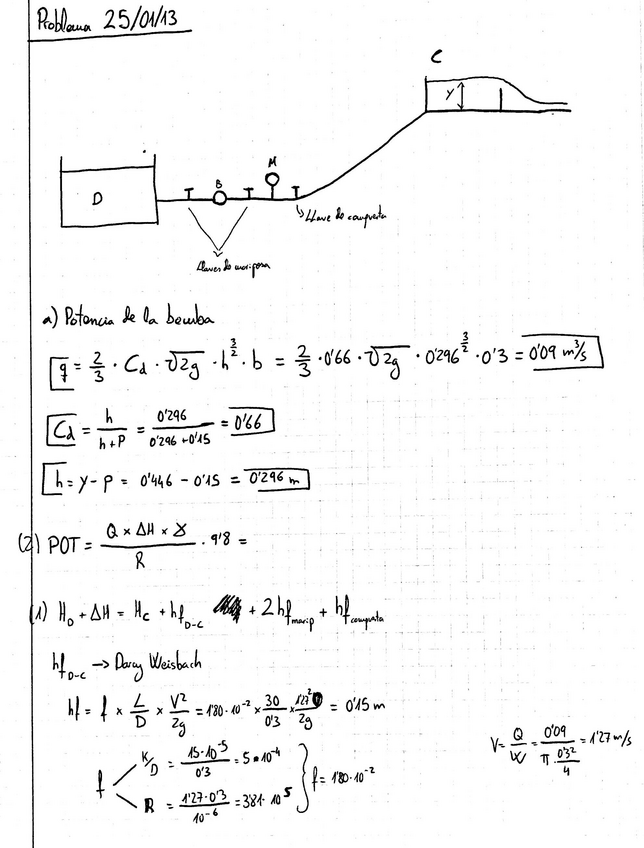 Problema 25/01/13
C
y
D
B
M
Llave de compuerta
Llaves de mariposa
a) Potencia de la bomba
q = 2/3 · Cd · √2g · h^3/2 · b = 2/3 · 0'66 · √2g · 0'296^3/2 · 0'3 = 0'09 m³/s
Cd = h/(h+P) = 0'296/(0'296+0'15) = 0'66
h = y - p = 0'446 - 0'15 = 0'296 m
(2) POT = (Q × ΔH × γ)/R · 9'8 =
(1) H_D + ΔH = H_C + hf_D-C + 2hf_marip + hf_compuerta
hf_D-C → Darcy Weisbach
hf = f × L/D × V²/2g = 1'80·10⁻² × 30/0'3 × 1'27²/2g = 0'15 m
V = Q/W = 0'09/(π · 0'3²/4) = 1'27 m/s
f
K/D = 15·10⁻⁵/0'3 = 5·10⁻⁴
R = 1'27·0'3/10⁻⁶ = 3'81·10⁵
f = 1'80·10⁻²